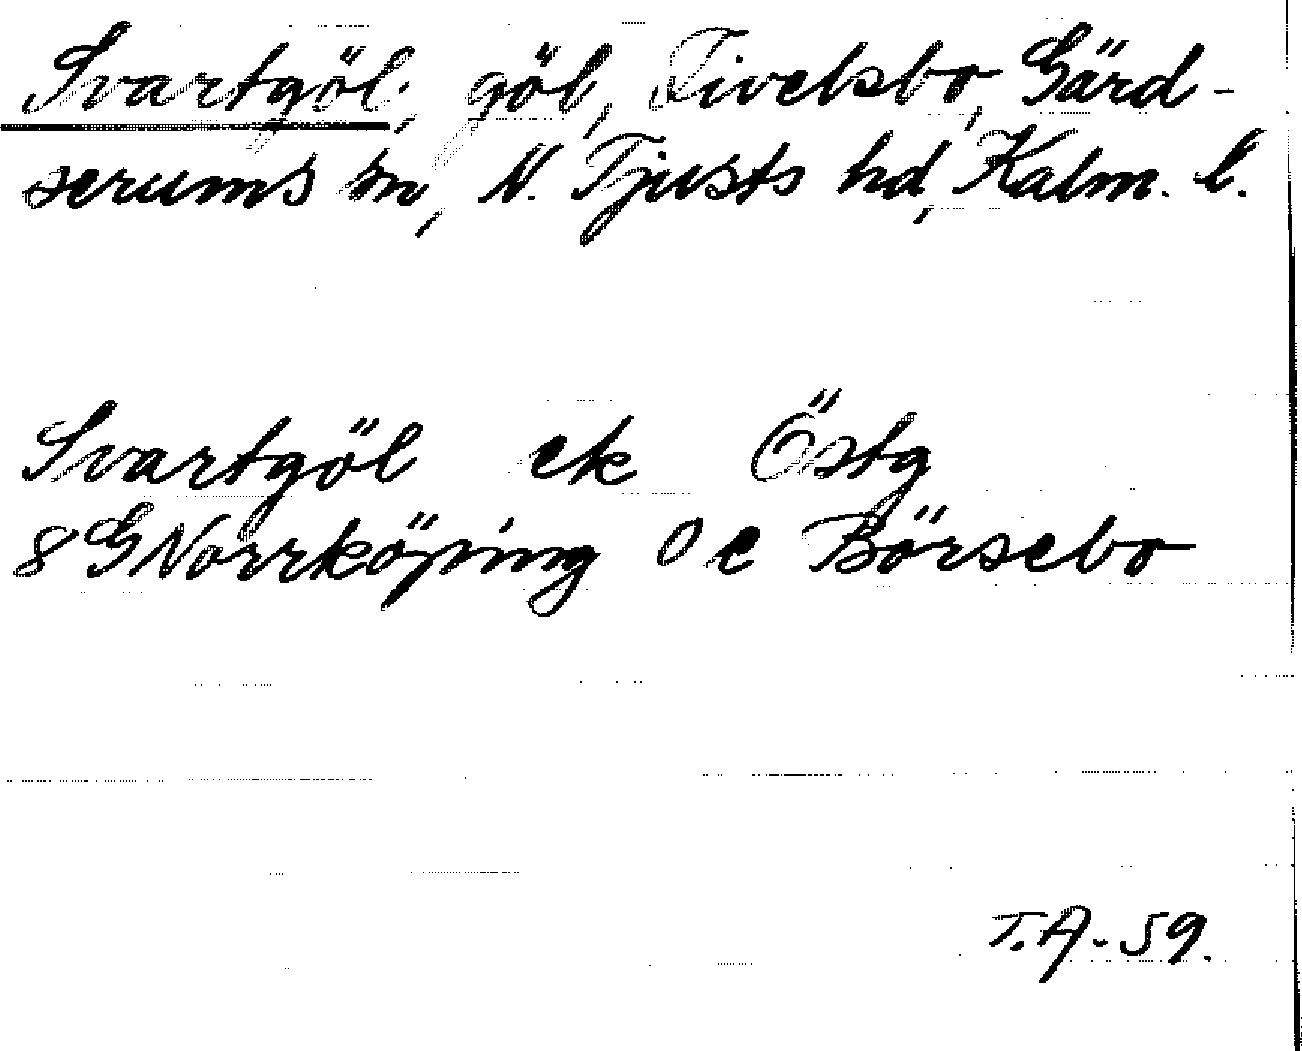 Svartgöl, göl, Tivelsbo, Gärd-
serums sn, N. Tjusts hd, Kalm. l.
Svartgöl ek Östg
8 G Norrköping 0 e Börsebo
T.A-59.